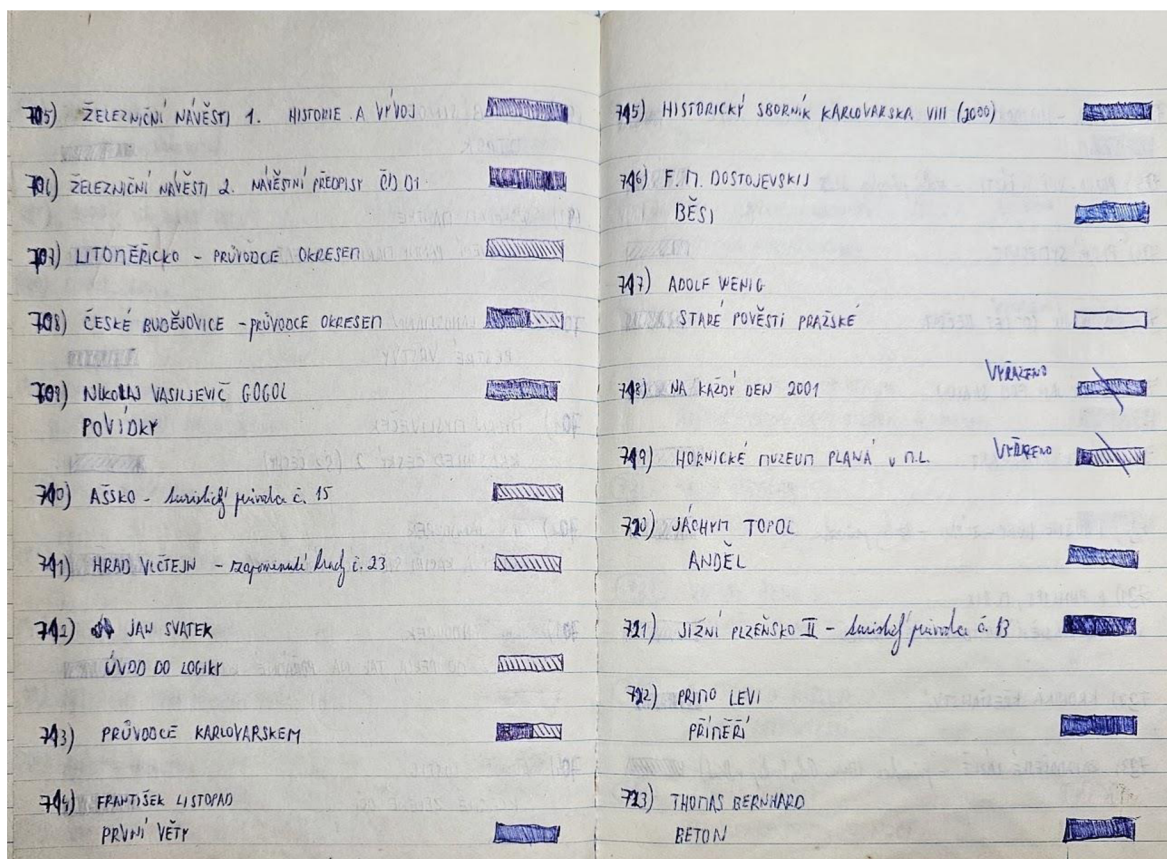 705) ŽELEZNIČNÍ NÁVĚSTI 1. HISTORIE A VÝVOJ
706) ŽELEZNIČNÍ NÁVĚSTI 2. NÁVĚSTNÍ PŘEDPISY ČD D1
707) LITOMĚŘICKO - PRŮVODCE OKRESEM
708) ČESKÉ BUDĚJOVICE - PRŮVODCE OKRESEM
709) NIKOLAJ VASILJEVIČ GOGOL
POVÍDKY
710) AŠSKO - turistický průvodce č. 15
711) HRAD VLČTEJN - zapomenuté hrady č. 23
712) JAN SVATEK
ÚVOD DO LOGIKY
713) PRŮVODCE KARLOVARSKEM
714) FRANTIŠEK LISTOPAD
PRVNÍ VĚTY
715) HISTORICKÝ SBORNÍK KARLOVARSKA VIII (2000)
716) F. M. DOSTOJEVSKIJ
BĚSI
717) ADOLF WENIG
STARÉ POVĚSTI PRAŽSKÉ
VYŘAZENO
718) NA KAŽDÝ DEN 2001
VYŘAZENO
719) HORNICKÉ MUZEUM PLANÁ u M.L.
720) JÁCHYM TOPOL
ANDĚL
721) JIŽNÍ PLZEŇSKO II - turistický průvodce č. 13
722) PRIMO LEVI
PŘÍMĚŘÍ
723) THOMAS BERNHARD
BETON